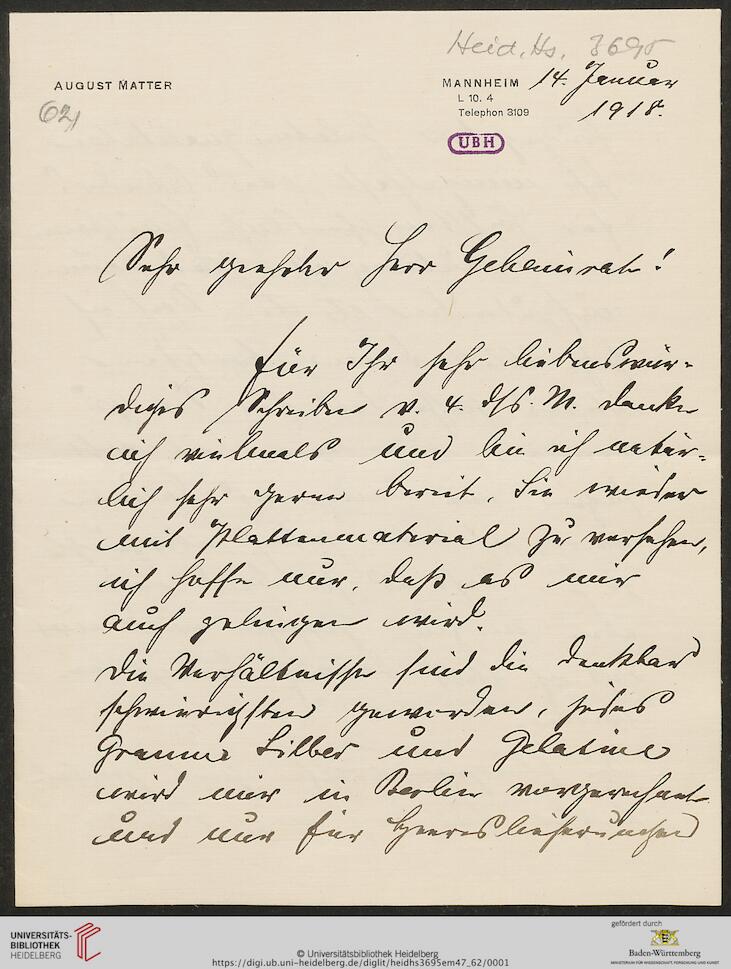 Heid. Hs. 3695
AUGUST MATTER
62,
MANNHEIM 14. Januar
L 10. 4
1918.
Telephon 3109
UBH
Sehr geehrter Herr Geheimrat!
Für Ihr sehr liebenswür-
diges Schreiben v. 4. ds. M. danke
ich vielmals und bin ich natür-
lich sehr gerne bereit, Sie wieder
mit Plattenmaterial zu versehen,
ich hoffe nur, daß es mir
auch gelingen wird.
Die Verhältnisse sind die denkbar
schwierigsten geworden, jedes
Gramm Silber und Gelatine
wird mir in Berlin vorgerechnet
und nur für Heereslieferungen
UNIVERSITÄTS-
BIBLIOTHEK
HEIDELBERG
© Universitätsbibliothek Heidelberg
https://digi.ub.uni-heidelberg.de/diglit/heidhs3695em47_62/0001
gefördert durch
Baden-Württemberg
MINISTERIUM FÜR WISSENSCHAFT, FORSCHUNG UND KUNST